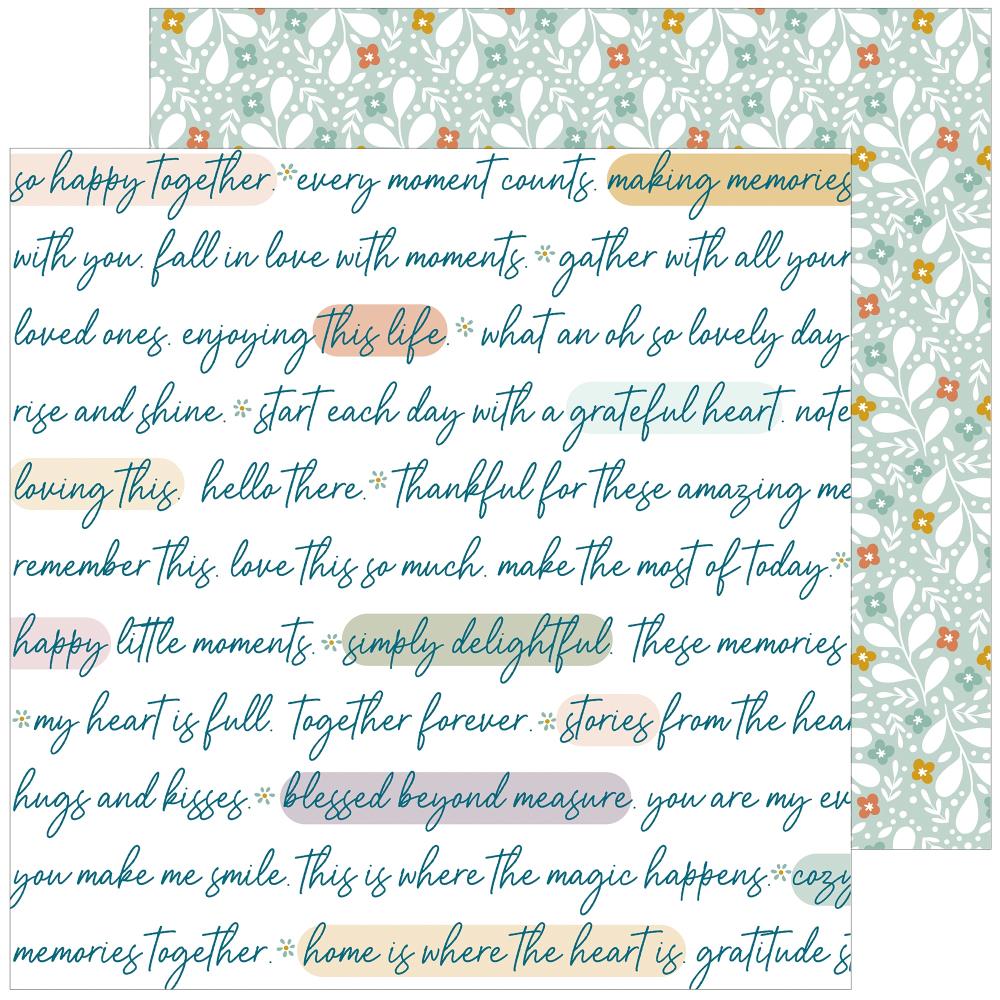 so happy together. every moment counts. making memories
with you. fall in love with moments. gather with all your
loved ones. enjoying this life. what an oh so lovely day
rise and shine. start each day with a grateful heart. note
loving this. hello there. thankful for these amazing me
remember this. love this so much. make the most of today.
happy little moments. simply delightful. These memories
my heart is full. together forever. stories from the hear
hugs and kisses. blessed beyond measure. you are my ev
you make me smile. this is where the magic happens. cozy
memories together. home is where the heart is. gratitude s